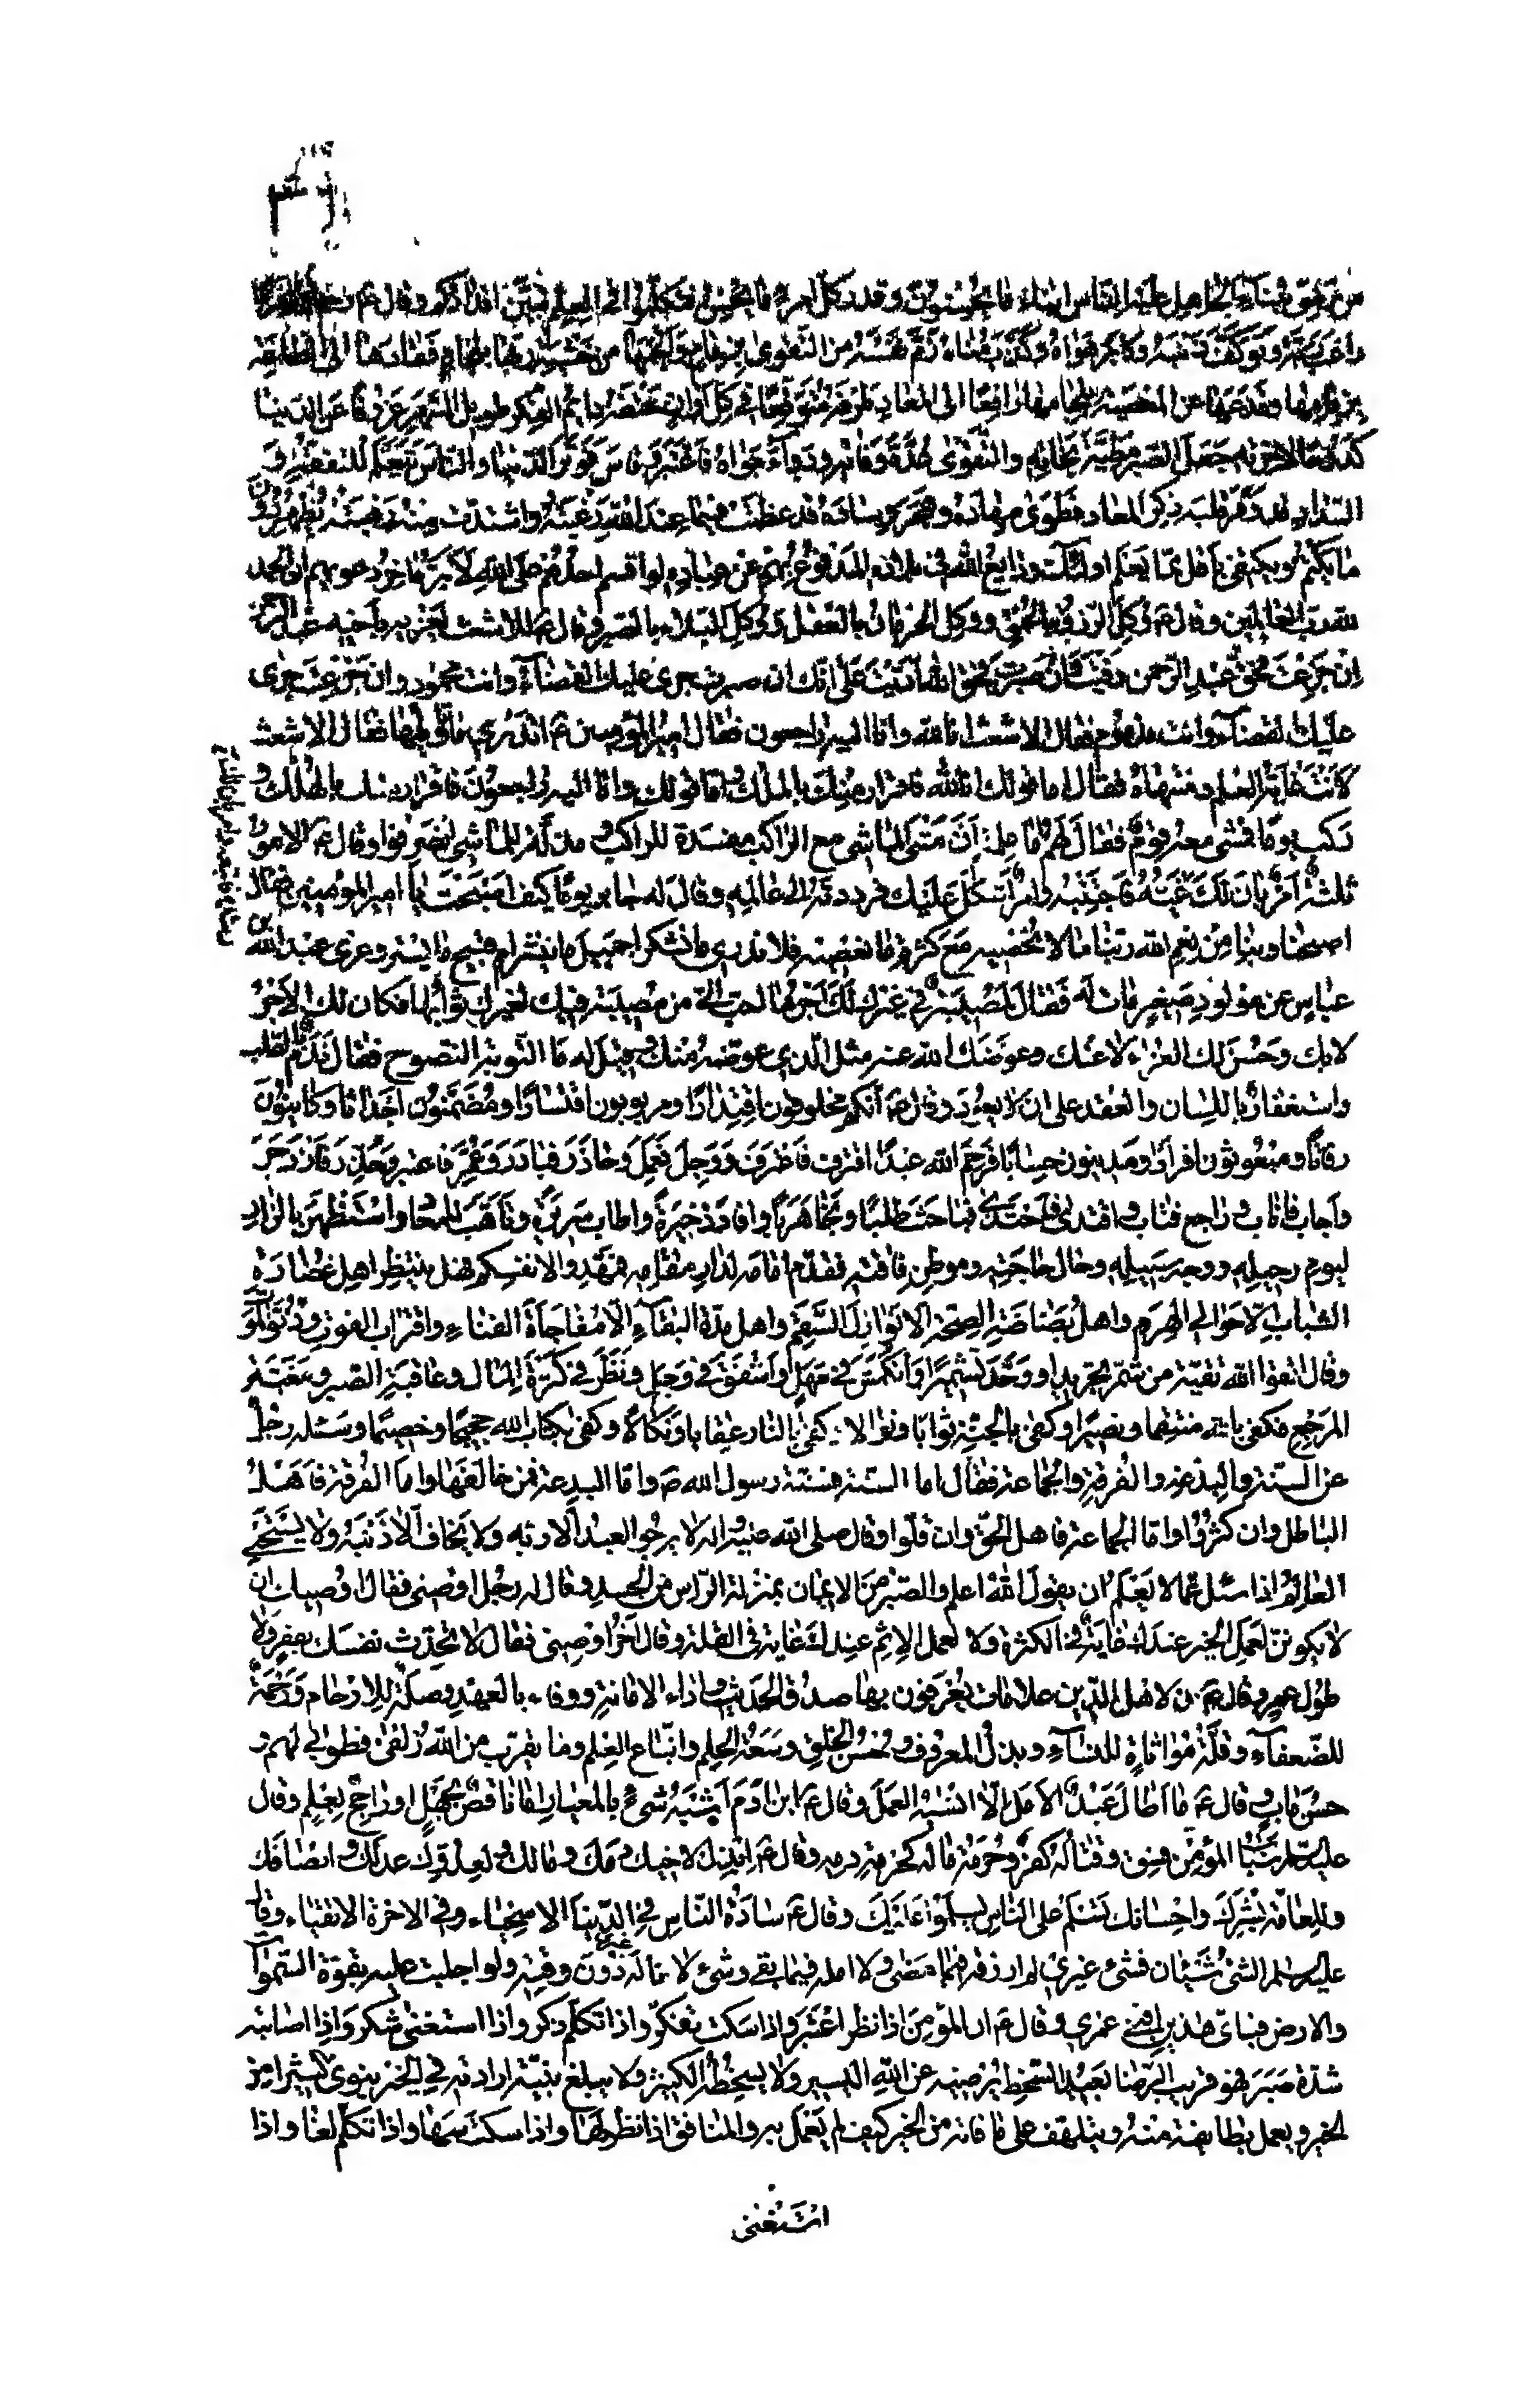 الناس ابناء ما يحسنون وقدر كل امرء ما يحسن فتكلموا في العلم تبين اقداركم وقال
راقب ربه وتوكف ذنبه وكابر هواه وكذب مناه زم نفسه من التقوى بزمام والجمها من خشية ربها بلجام فقادها الى الطاعة
بزمامها وقدعها عن المعصية بلجامها رافعا الى المعاد طرفه متوقعا في كل اوان حتفه دائم الفكر طويل السهر عزوفا عن الدنيا
كدوحا لاخرته جعل الصبر مطية نجاته والتقوى عدة وفاته ودواء جواه فاعتبر وقاس فوتر الدنيا والناس يتعلم للتفقه و
السداد قد وقر قلبه ذكر المعاد فطوى مهاده وهجر وساده قد عظمت فيما عند الله رغبته واشتدت منه رهبته يظهر دون
ما يكتم ويكتفي باقل مما يعلم اولئك ودائع الله في بلاده المدفوع بهم عن عباده لو اقسم احدهم على الله لابره اخر دعويهم ان الحمد
لله رب العالمين وقال ع وكل الرزق بالحمق ووكل الحرمان بالعقل ووكل البلاء بالصبر وقال ع للاشعث يعزيه باخيه عبد الرحمن
ان جزعت فحق عبد الرحمن وفيت وان صبرت فحق الله اديت على انك ان صبرت جرى عليك القضاء وانت محمود وان جزعت جرى
عليك القضاء وانت مذموم فقال الاشعث انا لله وانا اليه راجعون فقال امير المؤمنين ع اتدري ما تاويلها فقال الاشعث
لانت غاية العلم ومنتهاه فقال اما قولك انا لله فاقرار منك بالملك واما قولك وانا اليه راجعون فاقرار منك بالهلك و
ركب يوما فمشى معه قوم فقال لهم اما علمتم ان مشى الماشى مع الراكب مفسدة للراكب ومذلة للماشى انصرفوا وقال ع الامور
ثلثة امر بان لك غيه فاجتنبه وامر اشكل عليك فرددته الى عالمه وقال له جابر يوما كيف اصبحت يا امير المؤمنين فقال
اصبحنا وبنا من نعم الله ربنا ما لا نحصيه مع كثرة ما نعصيه فلا ندري ما نشكر اجميل ما ينشر ام قبيح ما يستر وعزى عبد الله بن
عباس عن مولود صغير مات له فقال لمصيبة في غيرك لك اجرها احب الى من مصيبة فيك لغيرك ثوابها فكان لك الاجر
لا بك وحسن لك العزاء لا عنك وعوضك الله عنه مثل الذي عوضه منك وقيل له ما التوبة النصوح فقال ندم بالقلب
واستغفار باللسان والعقد على ان لا يعود وقال ع انكم مخلوقون اقتدارا ومربوبون اقتسارا ومضمنون اجداثا وكائنون
رفاتا ومبعوثون افرادا ومدينون حسابا فرحم الله عبدا اقترف فاعترف ووجل فعمل وحاذر فبادر وعمر فاعتبر وحذر فازدجر
واجاب فاناب وراجع فتاب واقتدى فاحتذى فباحث طلبا ونجا هربا وافاد ذخيرة واطاب سريرة وتاهب للمعاد واستظهر بالزاد
ليوم رحيله ووجه سبيله وحال حاجته وموطن فاقته فقدم امامه لدار مقامه فمهدوا لانفسكم فهل ينتظر اهل غضارة
الشباب الا حوانى الهرم واهل بضاضة الصحة الا نوازل السقم واهل مدة البقاء الا مفاجاة الفناء واقتراب الفوت ودنو الموت
وقال اتقوا الله تقية من شمر تجريدا وجد تشميرا وانكمش في مهل واشفق في وجل ونظر في كرة المال وعاقبة الصبر ومغبة
المرجع فكفى بالله منتقما ونصيرا وكفى بالجنة ثوابا ونوالا وكفى بالنار عقابا ونكالا وكفى بكتاب الله حجيجا وخصيما وسئله رجل
عن السنة والبدعة والفرقة والجماعة فقال اما السنة فسنة رسول الله ص واما البدعة فمن خالفها واما الفرقة فاهل
الباطل وان كثروا واما الجماعة فاهل الحق وان قلوا وقال صلى الله عليه واله لا يرجو العبد الا ربه ولا يخاف الا ذنبه ولا يستحي
العالم اذا سئل عما لا يعلم ان يقول الله اعلم والصبر من الايمان بمنزلة الراس من الجسد وقال له رجل اوصنى فقال اوصيك ان
لا يكونن لعمل الخير عندك غاية في الكثرة ولا لعمل الاثم عندك غاية في القلة وقال اخر اوصنى فقال لا تحدث نفسك بفقر ولا
طول عمر وقال ع ان لاهل الدين علامات يعرفون بها صدق الحديث واداء الامانة ووفاء بالعهد وصلة للارحام ورحمة
للضعفاء وقلة مؤاتاة للنساء وبذل المعروف وحسن الخلق وسعة الحلم واتباع العلم وما يقرب من الله زلفى فطوبى لهم و
حسن ماب وقال ع ما اطال عبد الامل الا انساه العمل وقال ع ابن ادم اشبه شئ بالمعيار اما ناقص بجهل او راجح بعلم وقال
عليه السلام سباب المؤمن فسق وقتاله كفر وحرمة ماله كحرمة دمه وقال ع ابذل لاخيك دمك ومالك ولعدوك عدلك وانصافك
وللعامة بشرك واحسانك تسلم على الناس يسلموا عليك وقال ع سادة الناس في الدنيا الاسخياء وفي الاخرة الاتقياء وقال
عليه السلام الشئ شيئان فشئ غيري لم ارزقه فيما مضى ولا امله فيما بقى وشئ لا اناله دون وقته ولو اجلبت عليه بقوة السموات
والارض فباى هذين افنى عمري وقال ع ان المؤمن اذا نظر اعتبر واذا سكت تفكر واذا تكلم ذكر واذا استغنى شكر واذا اصابته
شدة صبر فهو قريب الرضا بعيد السخط يرضيه عن الله اليسير ولا يسخطه الكثير ولا يبلغ بنيته ارادته في الخير ينوى كثيرا من
الخير ويعمل بطائفة منه ويتلهف على ما فاته من الخير كيف لم يعمل به والمنافق اذا نظر لها واذا سكت سها واذا تكلم لغا واذا
استغنى